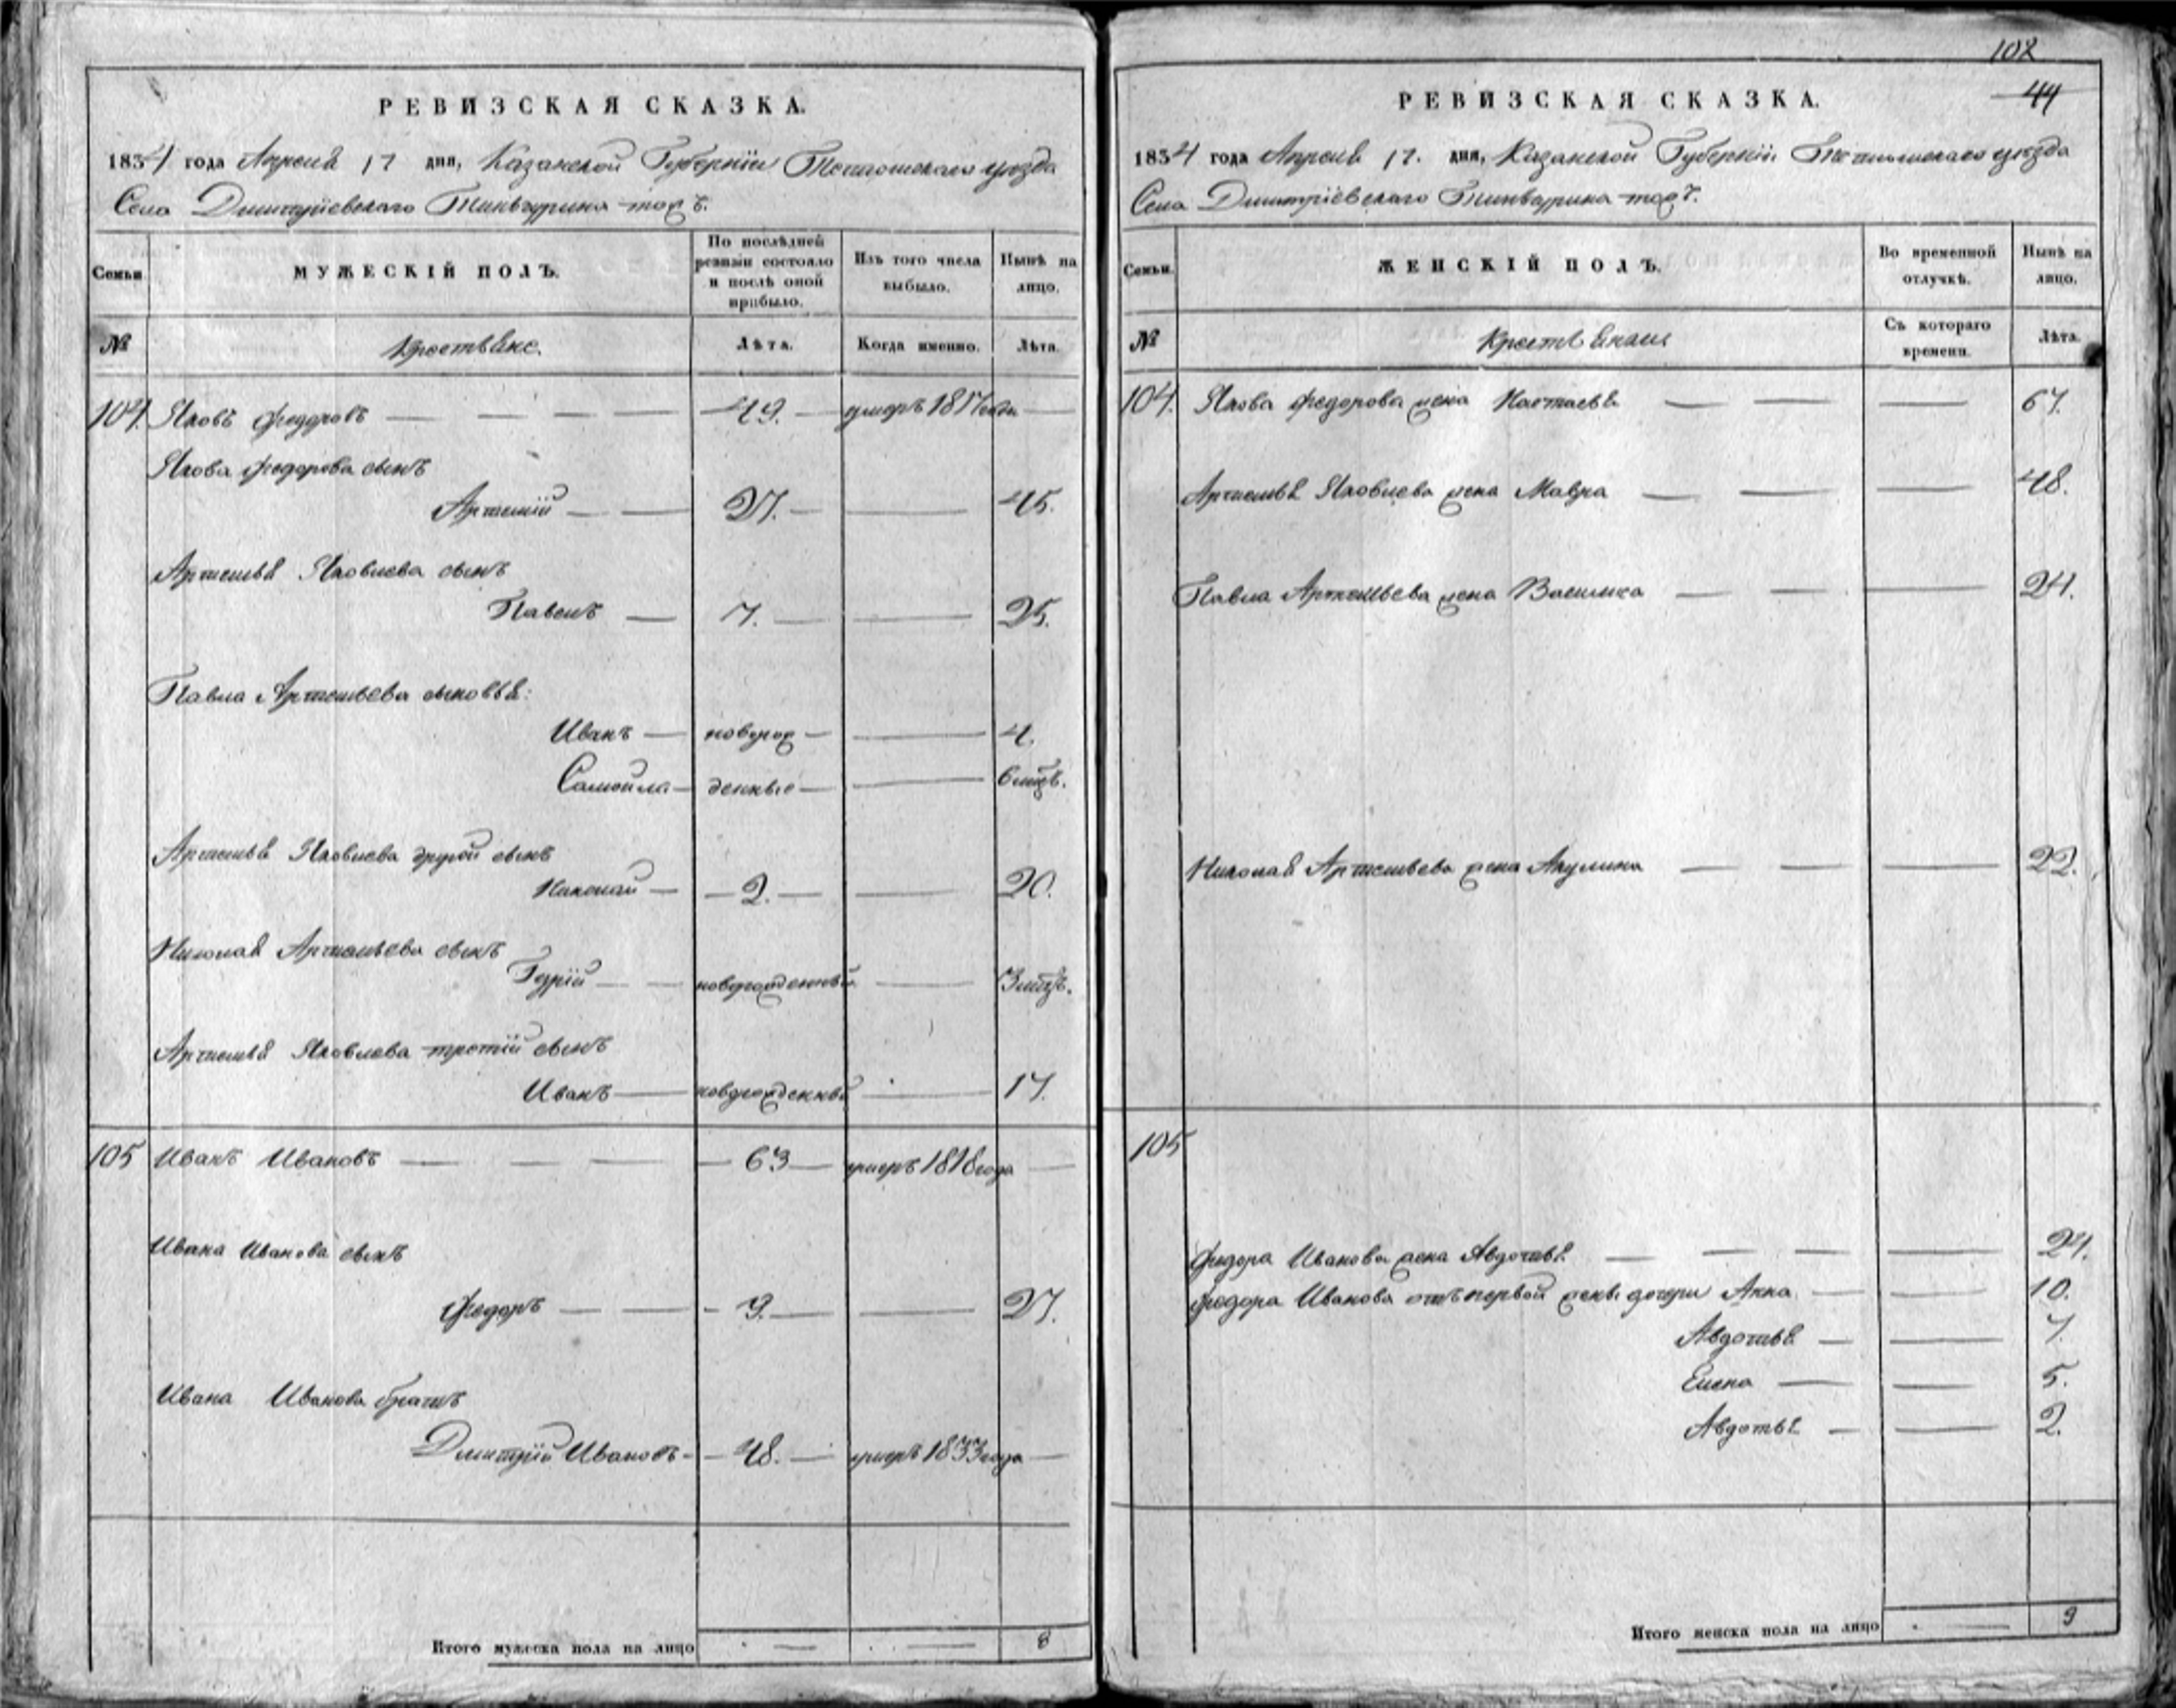 РЕВИЗСКАЯ СКАЗКА.
1834 года Апреля 17 дня, Казанской Губерніи Тетюшскаго уезда
Села Дмитріевскаго
Семьи
МУЖЕСКІЙ ПОЛЪ.
По послѣдней ревизіи состояло и послѣ оной прибыло.
Изъ того числа выбыло.
Нынѣ на лицо.
№
Крестьяне.
Лѣта.
Когда именно.
Лѣта.
104. Яковъ Федоровъ 49. умеръ 1817 года
Якова Федорова сынъ
Артемій 27. 45.
Артемья Яковлева сынъ
Павелъ 7. 25.
Павла Артемьева сыновья:
Иванъ новорож 4.
Самойла денные 6 мцъ.
Артемья Яковлева другой сынъ
Николай 2. 20.
Николая Артемьева сынъ
Гурій новорожденный 3 мцъ.
Артемья Яковлева третій сынъ
Иванъ новорожденный 17.
105 Иванъ Ивановъ 63 умеръ 1818 года
Ивана Иванова сынъ
Федоръ 9. 27.
Ивана Иванова братъ
Дмитрій Ивановъ 48. умеръ 1833 года
Итого мужеска пола на лицо 8
102
44
РЕВИЗСКАЯ СКАЗКА.
1834 года Апреля 17. дня, Казанской Губерніи Тетюшскаго уезда
Села Дмитріевскаго
Семьи.
ЖЕНСКІЙ ПОЛЪ.
Во временной отлучкѣ.
Нынѣ на лицо.
№
Крестьянки
Съ котораго времени.
Лѣта.
104. Якова Федорова жена Настасья 67.
Артемья Яковлева жена Мавра 48.
Павла Артемьева жена Василиса 24.
Николая Артемьева жена Акулина 22.
105
Федора Иванова жена Авдотья 24.
Федора Иванова отъ первой жены дочери Анна 10.
Авдотья 7.
Елена 5.
Авдотья 2.
Итого женска пола на лицо 9